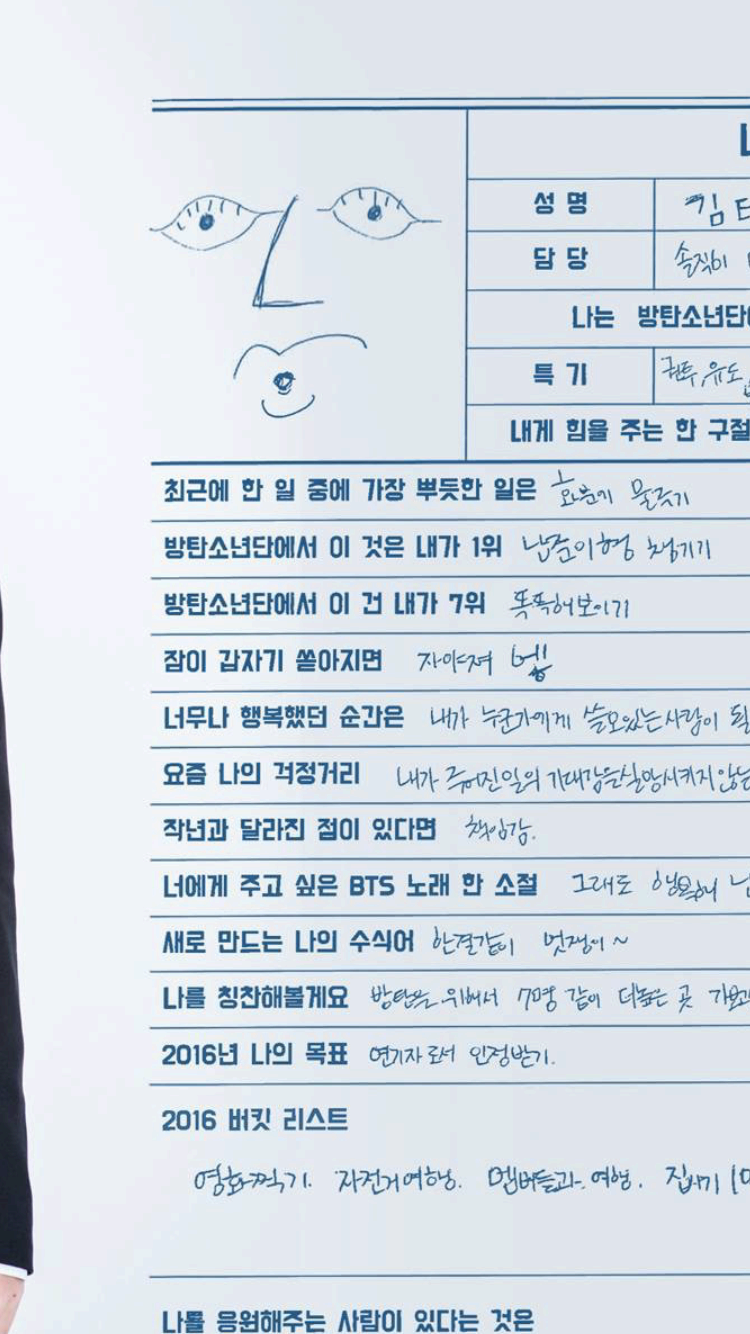 성 명 김 태
담 당 솔직히
나는 방탄소년단
특 기 권투, 유도,
내게 힘을 주는 한 구절
최근에 한 일 중에 가장 뿌듯한 일은 화분에 물주기
방탄소년단에서 이 것은 내가 1위 남준이형 챙기기
방탄소년단에서 이 건 내가 7위 똑똑해보이기
잠이 갑자기 쏟아지면 자야져
너무나 행복했던 순간은 내가 누군가에게 쓸모있는사람이 될
요즘 나의 걱정거리 내가 주어진일의 기대감을실망시키지않는
작년과 달라진 점이 있다면 책임감.
너에게 주고 싶은 BTS 노래 한 소절 그래도 행복해
새로 만드는 나의 수식어 한결같이 멋쟁이~
나를 칭찬해볼게요 방탄을 위해서 7명 같이 더높은 곳
2016년 나의 목표 연기자로서 인정받기.
2016 버킷 리스트
영화찍기. 자전거여행. 멤버들과 여행. 집사기
나를 응원해주는 사람이 있다는 것은